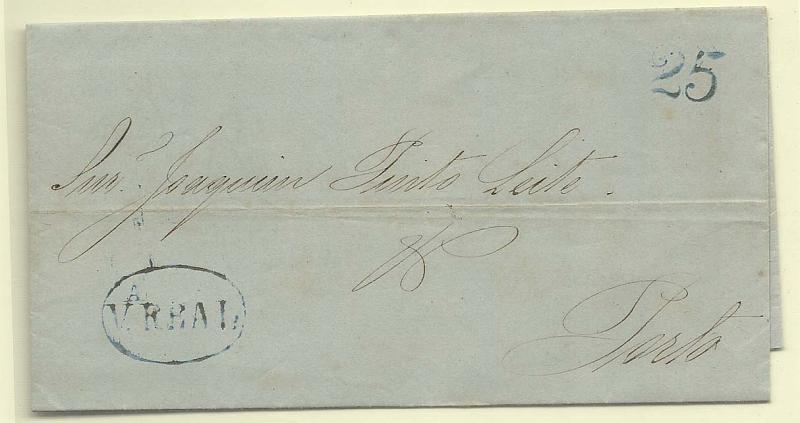 25
Snr. Joaquim Pinto Leite.
Porto
V. REAL